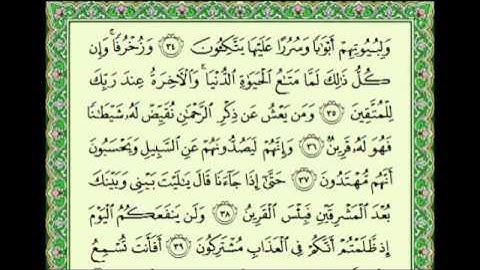 وَلِبُيُوتِهِمْ أَبْوَٰبًا وَسُرُرًا عَلَيْهَا يَتَّكِـُٔونَ ٣٤ وَزُخْرُفًا ۚ وَإِن
كُلُّ ذَٰلِكَ لَمَّا مَتَـٰعُ ٱلْحَيَوٰةِ ٱلدُّنْيَا ۚ وَٱلْـَٔاخِرَةُ عِندَ رَبِّكَ
لِلْمُتَّقِينَ ٣٥ وَمَن يَعْشُ عَن ذِكْرِ ٱلرَّحْمَـٰنِ نُقَيِّضْ لَهُۥ شَيْطَـٰنًا
فَهُوَ لَهُۥ قَرِينٌ ٣٦ وَإِنَّهُمْ لَيَصُدُّونَهُمْ عَنِ ٱلسَّبِيلِ وَيَحْسَبُونَ
أَنَّهُم مُّهْتَدُونَ ٣٧ حَتَّىٰٓ إِذَا جَآءَنَا قَالَ يَـٰلَيْتَ بَيْنِى وَبَيْنَكَ
بُعْدَ ٱلْمَشْرِقَيْنِ فَبِئْسَ ٱلْقَرِينُ ٣٨ وَلَن يَنفَعَكُمُ ٱلْيَوْمَ
إِذ ظَّلَمْتُمْ أَنَّكُمْ فِى ٱلْعَذَابِ مُشْتَرِكُونَ ٣٩ أَفَأَنتَ تُسْمِعُ